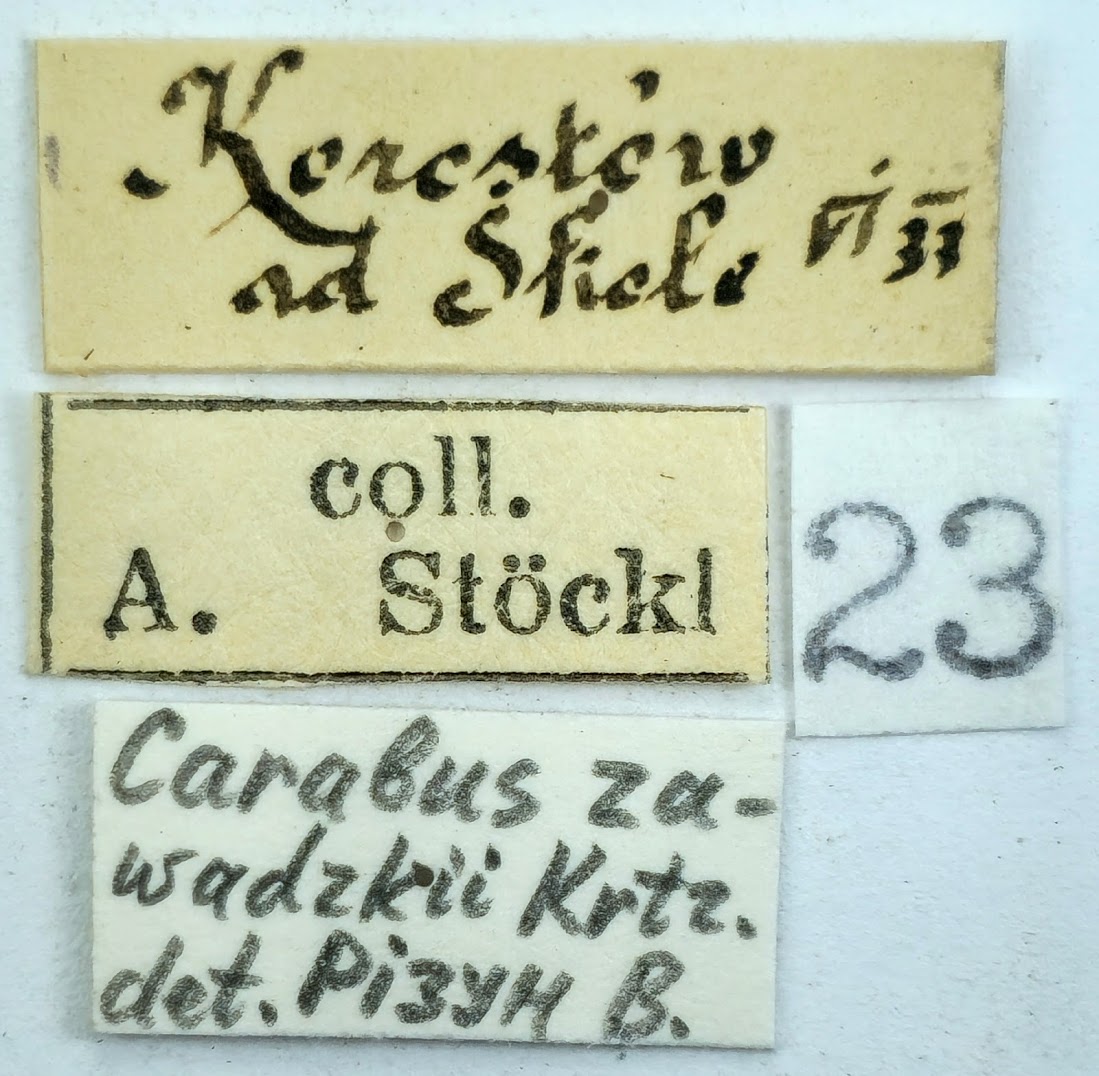 Kerestów
ad Skole VI 33
coll.
A. Stöckl
23
Carabus za-
wadzkii Krtz.
det. Різун В.